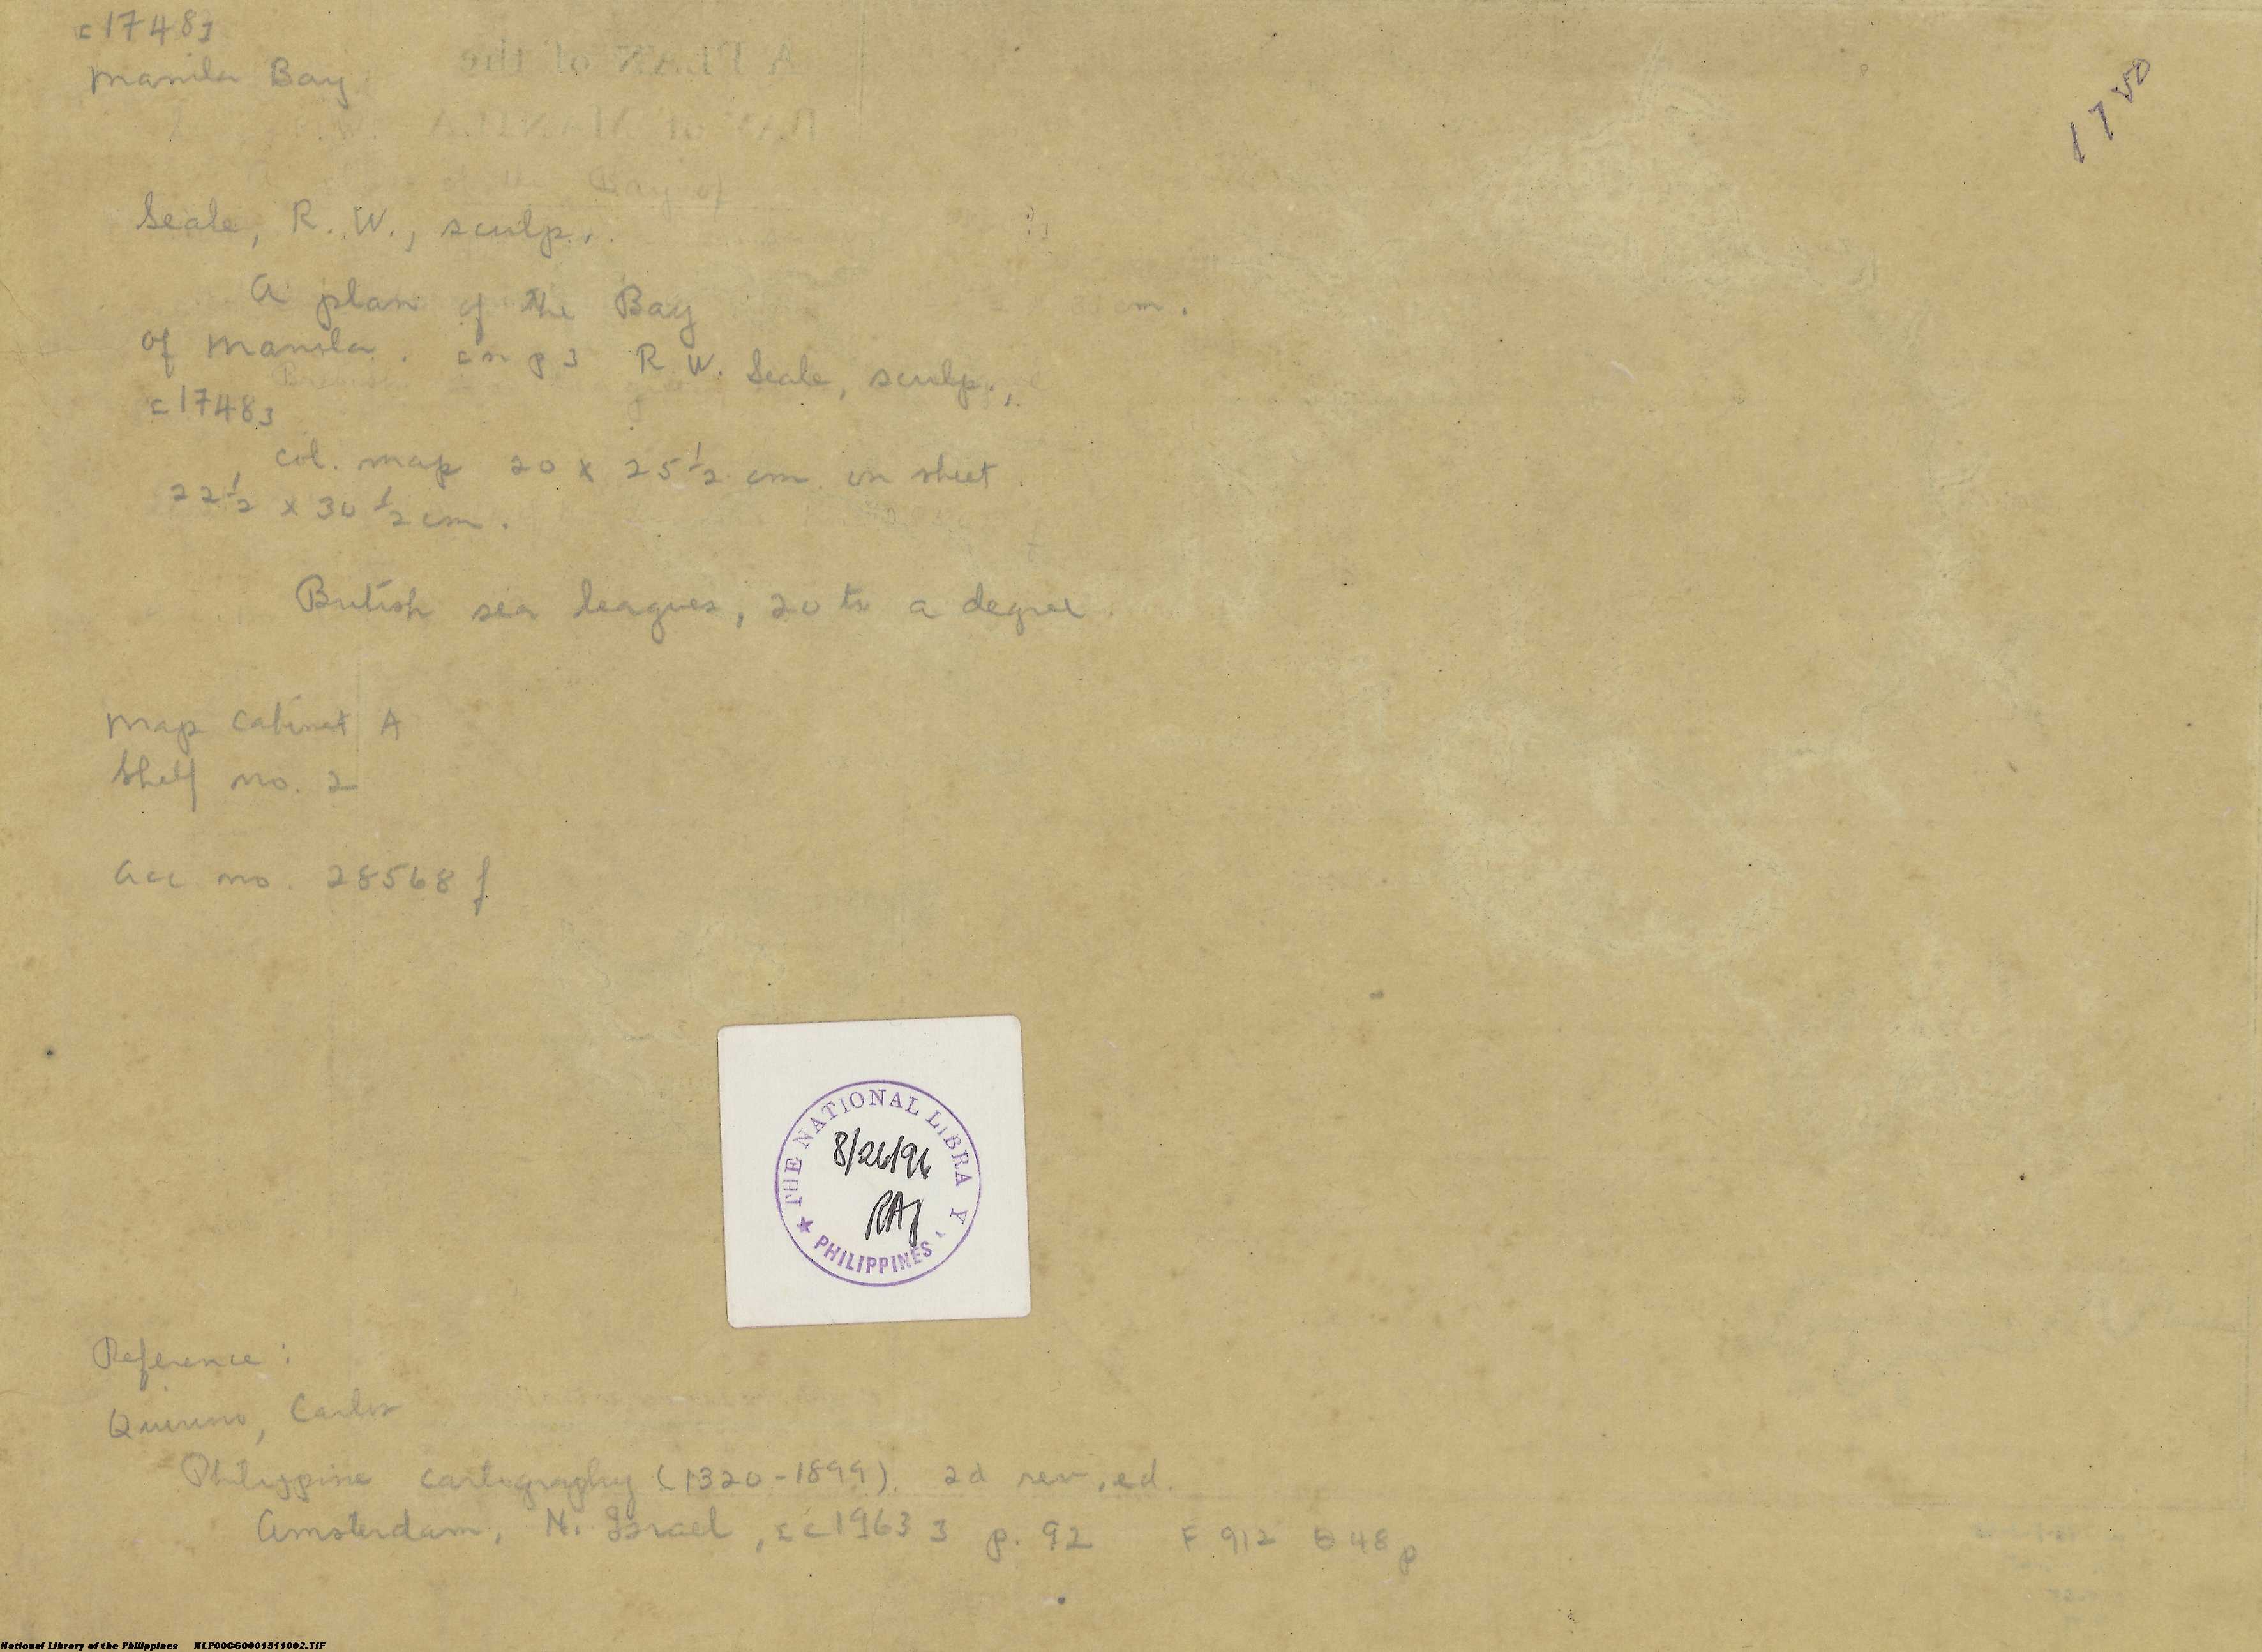 [1748]
Manila Bay
1750
Seale, R. W., sculp.
A plan of the Bay
of Manila. [n p] R W. Seale, sculp.,
[1748]
col. map 20 x 25 1/2 cm. on sheet
22 1/2 x 30 1/2 cm.
British sea leagues, 20 to a degree
Map Cabinet A
Shelf no. 2
Acc no. 28568 f
THE NATIONAL LIBRA Y
8/26/96
PHILIPPINES
Reference:
Quirino, Carlos
Philippine cartography (1320-1899). 2d rev, ed.
Amsterdam, N. Israel, [c1963] p. 92 F 912 48p
National Library of the Philippines NLP00CG0001511002.TIF